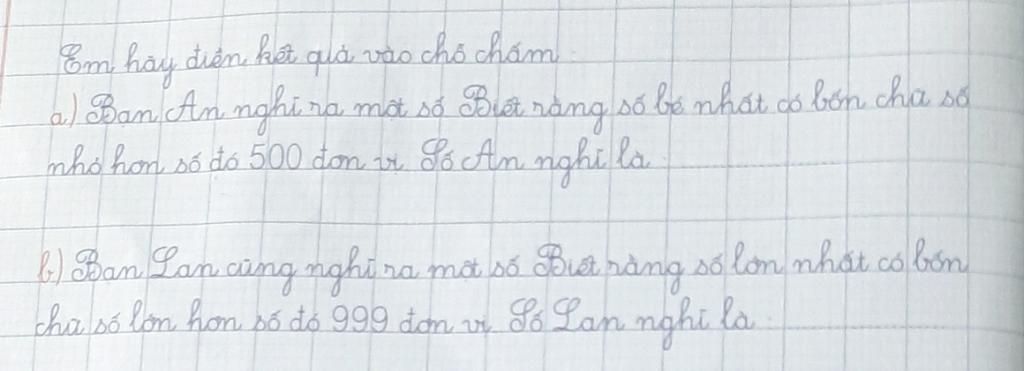 Em hãy điền kết quả vào chỗ chấm
a) Bạn An nghĩ ra một số Biết rằng số bé nhất có bốn chữ số
nhỏ hơn số đó 500 đơn vị Số An nghĩ là
b) Bạn Lan cũng nghĩ ra một số Biết rằng số lớn nhất có bốn
chữ số lớn hơn số đó 999 đơn vị Số Lan nghĩ là